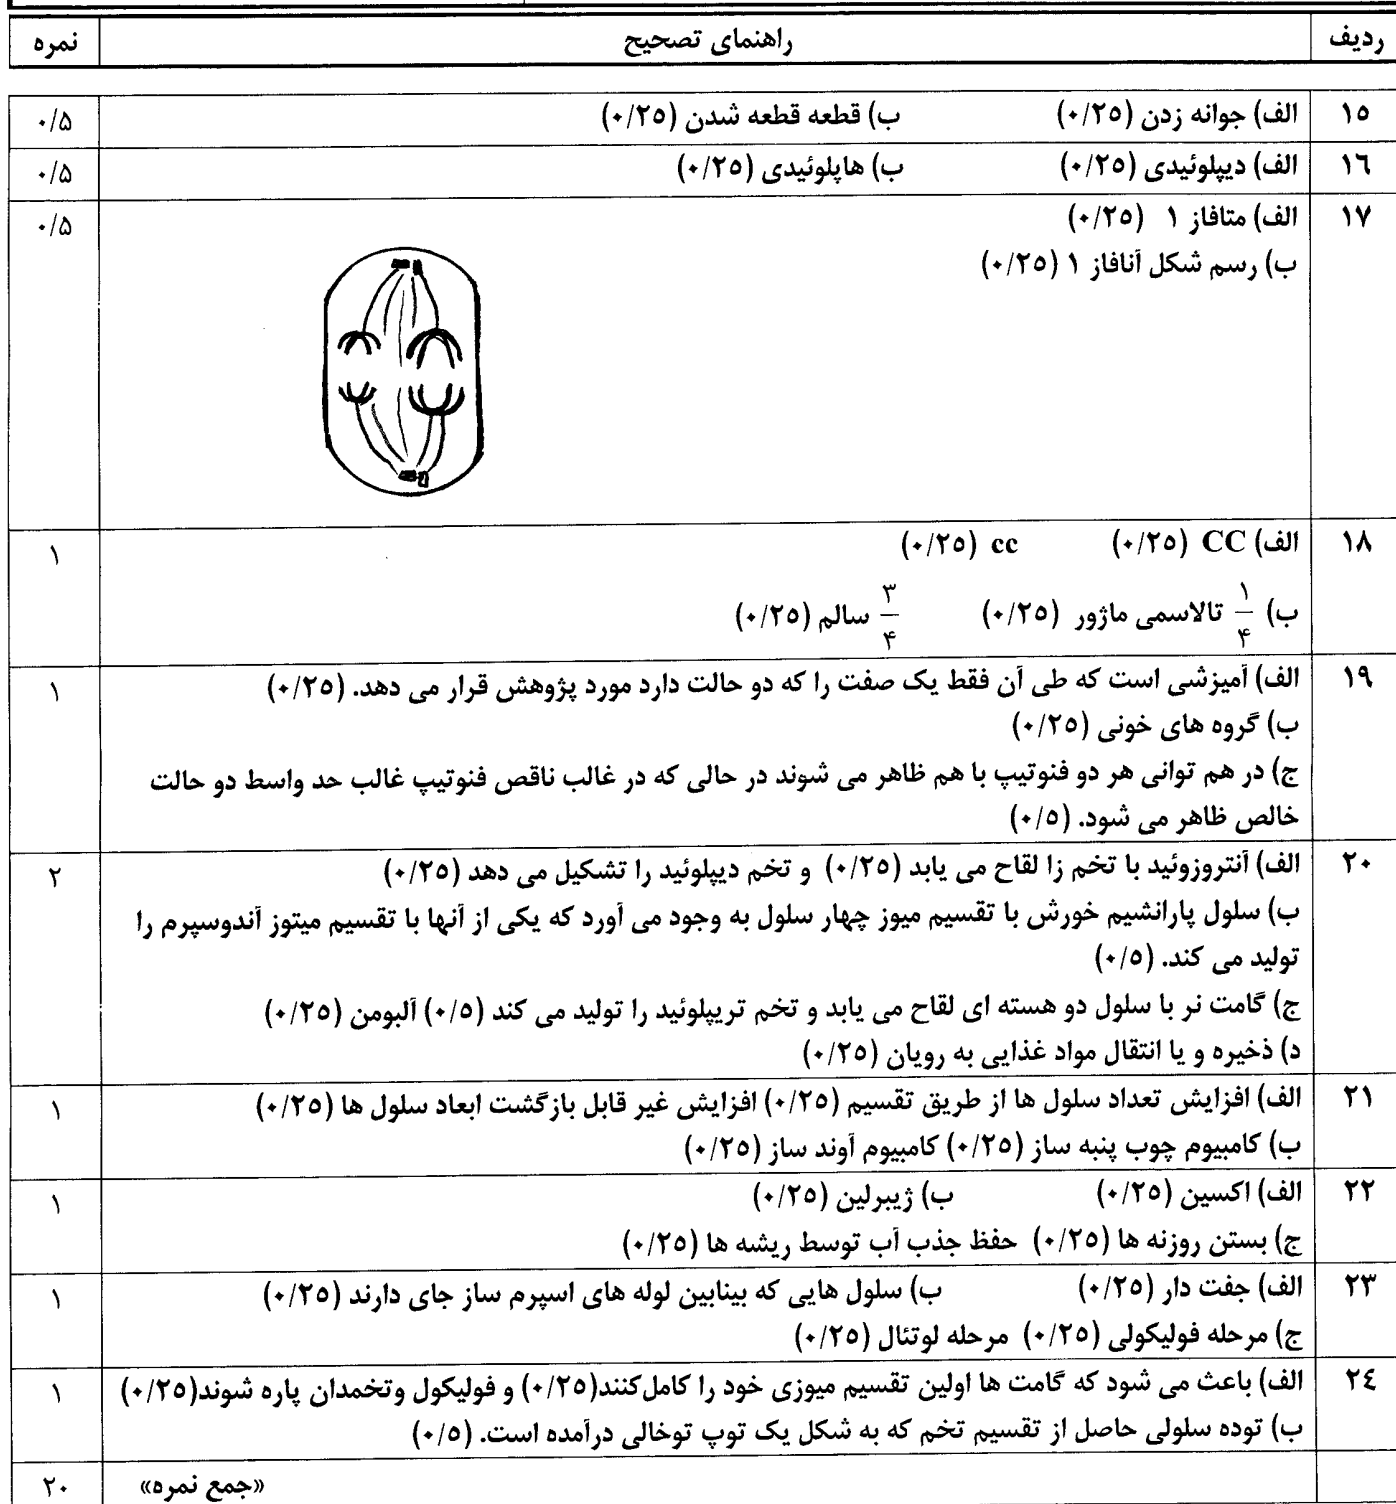 ردیف راهنمای تصحیح نمره
۱۵ الف) جوانه زدن (۰/۲۵) ب) قطعه قطعه شدن (۰/۲۵) ۰/۵
۱۶ الف) دیپلوئیدی (۰/۲۵) ب) هاپلوئیدی (۰/۲۵) ۰/۵
۱۷ الف) متافاز ۱ (۰/۲۵) ۰/۵
ب) رسم شکل آنافاز ۱ (۰/۲۵)
۱۸ الف) CC (۰/۲۵) cc (۰/۲۵) ۱
ب) ۱/۴ تالاسمی ماژور (۰/۲۵) ۳/۴ سالم (۰/۲۵)
۱۹ الف) آمیزشی است که طی آن فقط یک صفت را که دو حالت دارد مورد پژوهش قرار می دهد. (۰/۲۵) ۱
ب) گروه های خونی (۰/۲۵)
ج) در هم توانی هر دو فنوتیپ با هم ظاهر می شوند در حالی که در غالب ناقص فنوتیپ غالب حد واسط دو حالت
خالص ظاهر می شود. (۰/۵)
۲۰ الف) آنتروزوئید با تخم زا لقاح می یابد (۰/۲۵) و تخم دیپلوئید را تشکیل می دهد (۰/۲۵) ۲
ب) سلول پارانشیم خورش با تقسیم میوز چهار سلول به وجود می آورد که یکی از آنها با تقسیم میتوز آندوسپرم را
تولید می کند. (۰/۵)
ج) گامت نر با سلول دو هسته ای لقاح می یابد و تخم تریپلوئید را تولید می کند (۰/۵) آلبومن (۰/۲۵)
د) ذخیره و یا انتقال مواد غذایی به رویان (۰/۲۵)
۲۱ الف) افزایش تعداد سلول ها از طریق تقسیم (۰/۲۵) افزایش غیر قابل بازگشت ابعاد سلول ها (۰/۲۵) ۱
ب) کامبیوم چوب پنبه ساز (۰/۲۵) کامبیوم آوند ساز (۰/۲۵)
۲۲ الف) اکسین (۰/۲۵) ب) ژیبرلین (۰/۲۵) ۱
ج) بستن روزنه ها (۰/۲۵) حفظ جذب آب توسط ریشه ها (۰/۲۵)
۲۳ الف) جفت دار (۰/۲۵) ب) سلول هایی که بینابین لوله های اسپرم ساز جای دارند (۰/۲۵) ۱
ج) مرحله فولیکولی (۰/۲۵) مرحله لوتئال (۰/۲۵)
۲٤ الف) باعث می شود که گامت ها اولین تقسیم میوزی خود را کامل کنند(۰/۲۵) و فولیکول وتخمدان پاره شوند(۰/۲۵) ۱
ب) توده سلولی حاصل از تقسیم تخم که به شکل یک توپ توخالی درآمده است. (۰/۵)
«جمع نمره» ۲۰